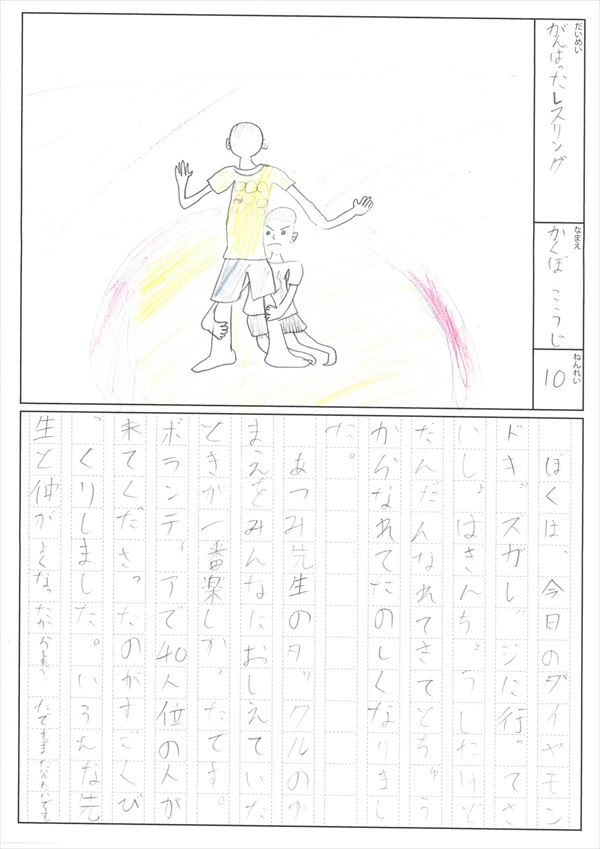 だいめい
がんばったレスリング
なまえ
かくぼ こうじ
ねんれい
10
ぼくは、今日のダイヤモン
ドキッズカレッジに行ってさ
いしょはきんちょうしたけど
だんだんなれてきてとちゅう
からなれてたのしくなりまし
た。
あつみ先生のタックルのか
まえをみんなにおしえていた
ときが一番楽しかったてす。
ボランティアで40人位の人が
来てくださったのがすごくび
っくりしました。いろんな先
生と仲がよくなったからよかったですまた